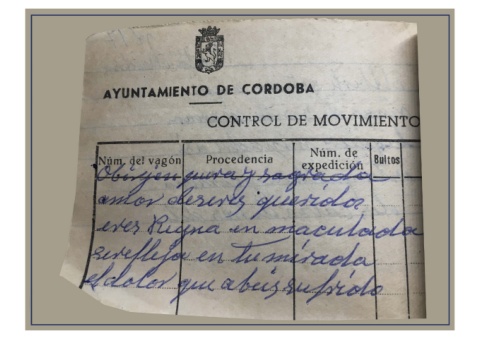 AYUNTAMIENTO DE CORDOBA
CONTROL DE MOVIMIENTO
Núm. del vagón Procedencia Núm. de expedición Bultos
Obirjen pura y sagrada
amor deseres queridos
eres Reyna in maculada
serefleja en tu mirada
el dolor que abéis sufrido